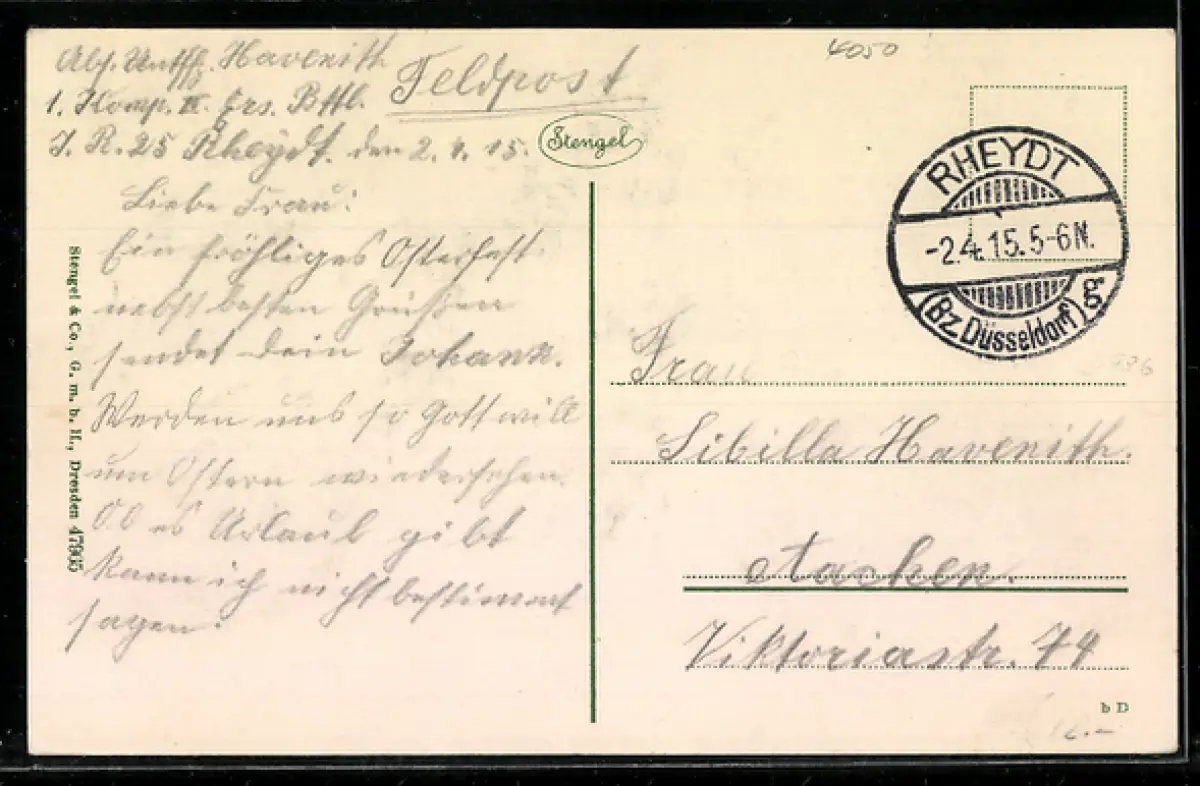 4050
Abs. Untffz. Havenith
Feldpost
1. Komp. II. Ers. Bttl.
J. R. 25 Rheydt. den 2.4.15.
Stengel
Liebe Frau!
Ein fröhliges Osterfest
nebst besten Grüßen
sendet dein Johann.
Werden uns so Gott will
um Ostern wiedersehen.
Ob es Urlaub gibt
kann ich nicht bestimmt
sagen.
Stengel & Co., G. m. b. H., Dresden 47965
RHEYDT
-2.4.15.5-6N.
(Bz. Düsseldorf) g
Frau
Sibilla Havenith.
Aachen.
Viktoriastr. 74
b D